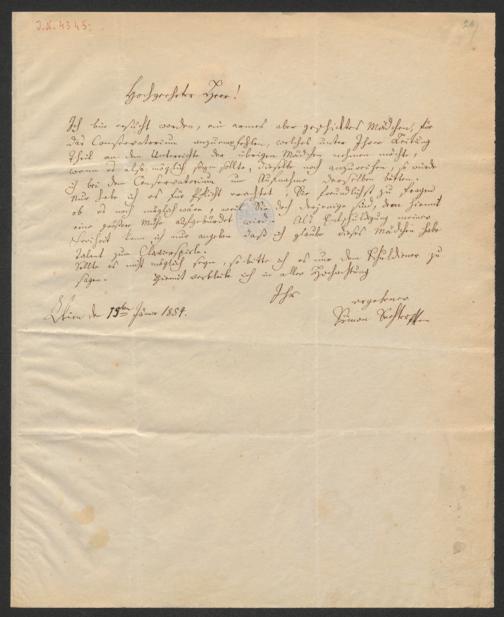 I.N. 4345.
Hochgeehrter Herr!
Ich bin ersucht worden, ein armes aber geschicktes Mädchen, für
das Conservatorium anzuempfehlen, welches unter Ihrer Leitung
Theil an dem Unterrichte der übrigen Mädchen nehmen möchte,
wenn es also möglich seyn sollte, dieselbe noch anzureihen, so würde
ich bei dem Conservatorium um Aufnahme derselben bitten.
Nun habe ich es für Pflicht erachtet, Sie freundlichst zu fragen
ob es noch möglich wäre, weil Sie doch derjenige sind, dem hiemit
eine größere Mühe aufgebürdet wird. Als Entschuldigung meiner
Freiheit kann ich nur angeben daß ich glaube dieses Mädchen habe
Talent zum Clavierspiele.
Sollte es nicht möglich seyn, so bitte ich es nur dem Schuldiener zu
sagen. Hiemit verbleibe ich in aller Hochachtung
Ihr
ergebener
Wien den 13ten Jänner 1854.
Simon Sechter